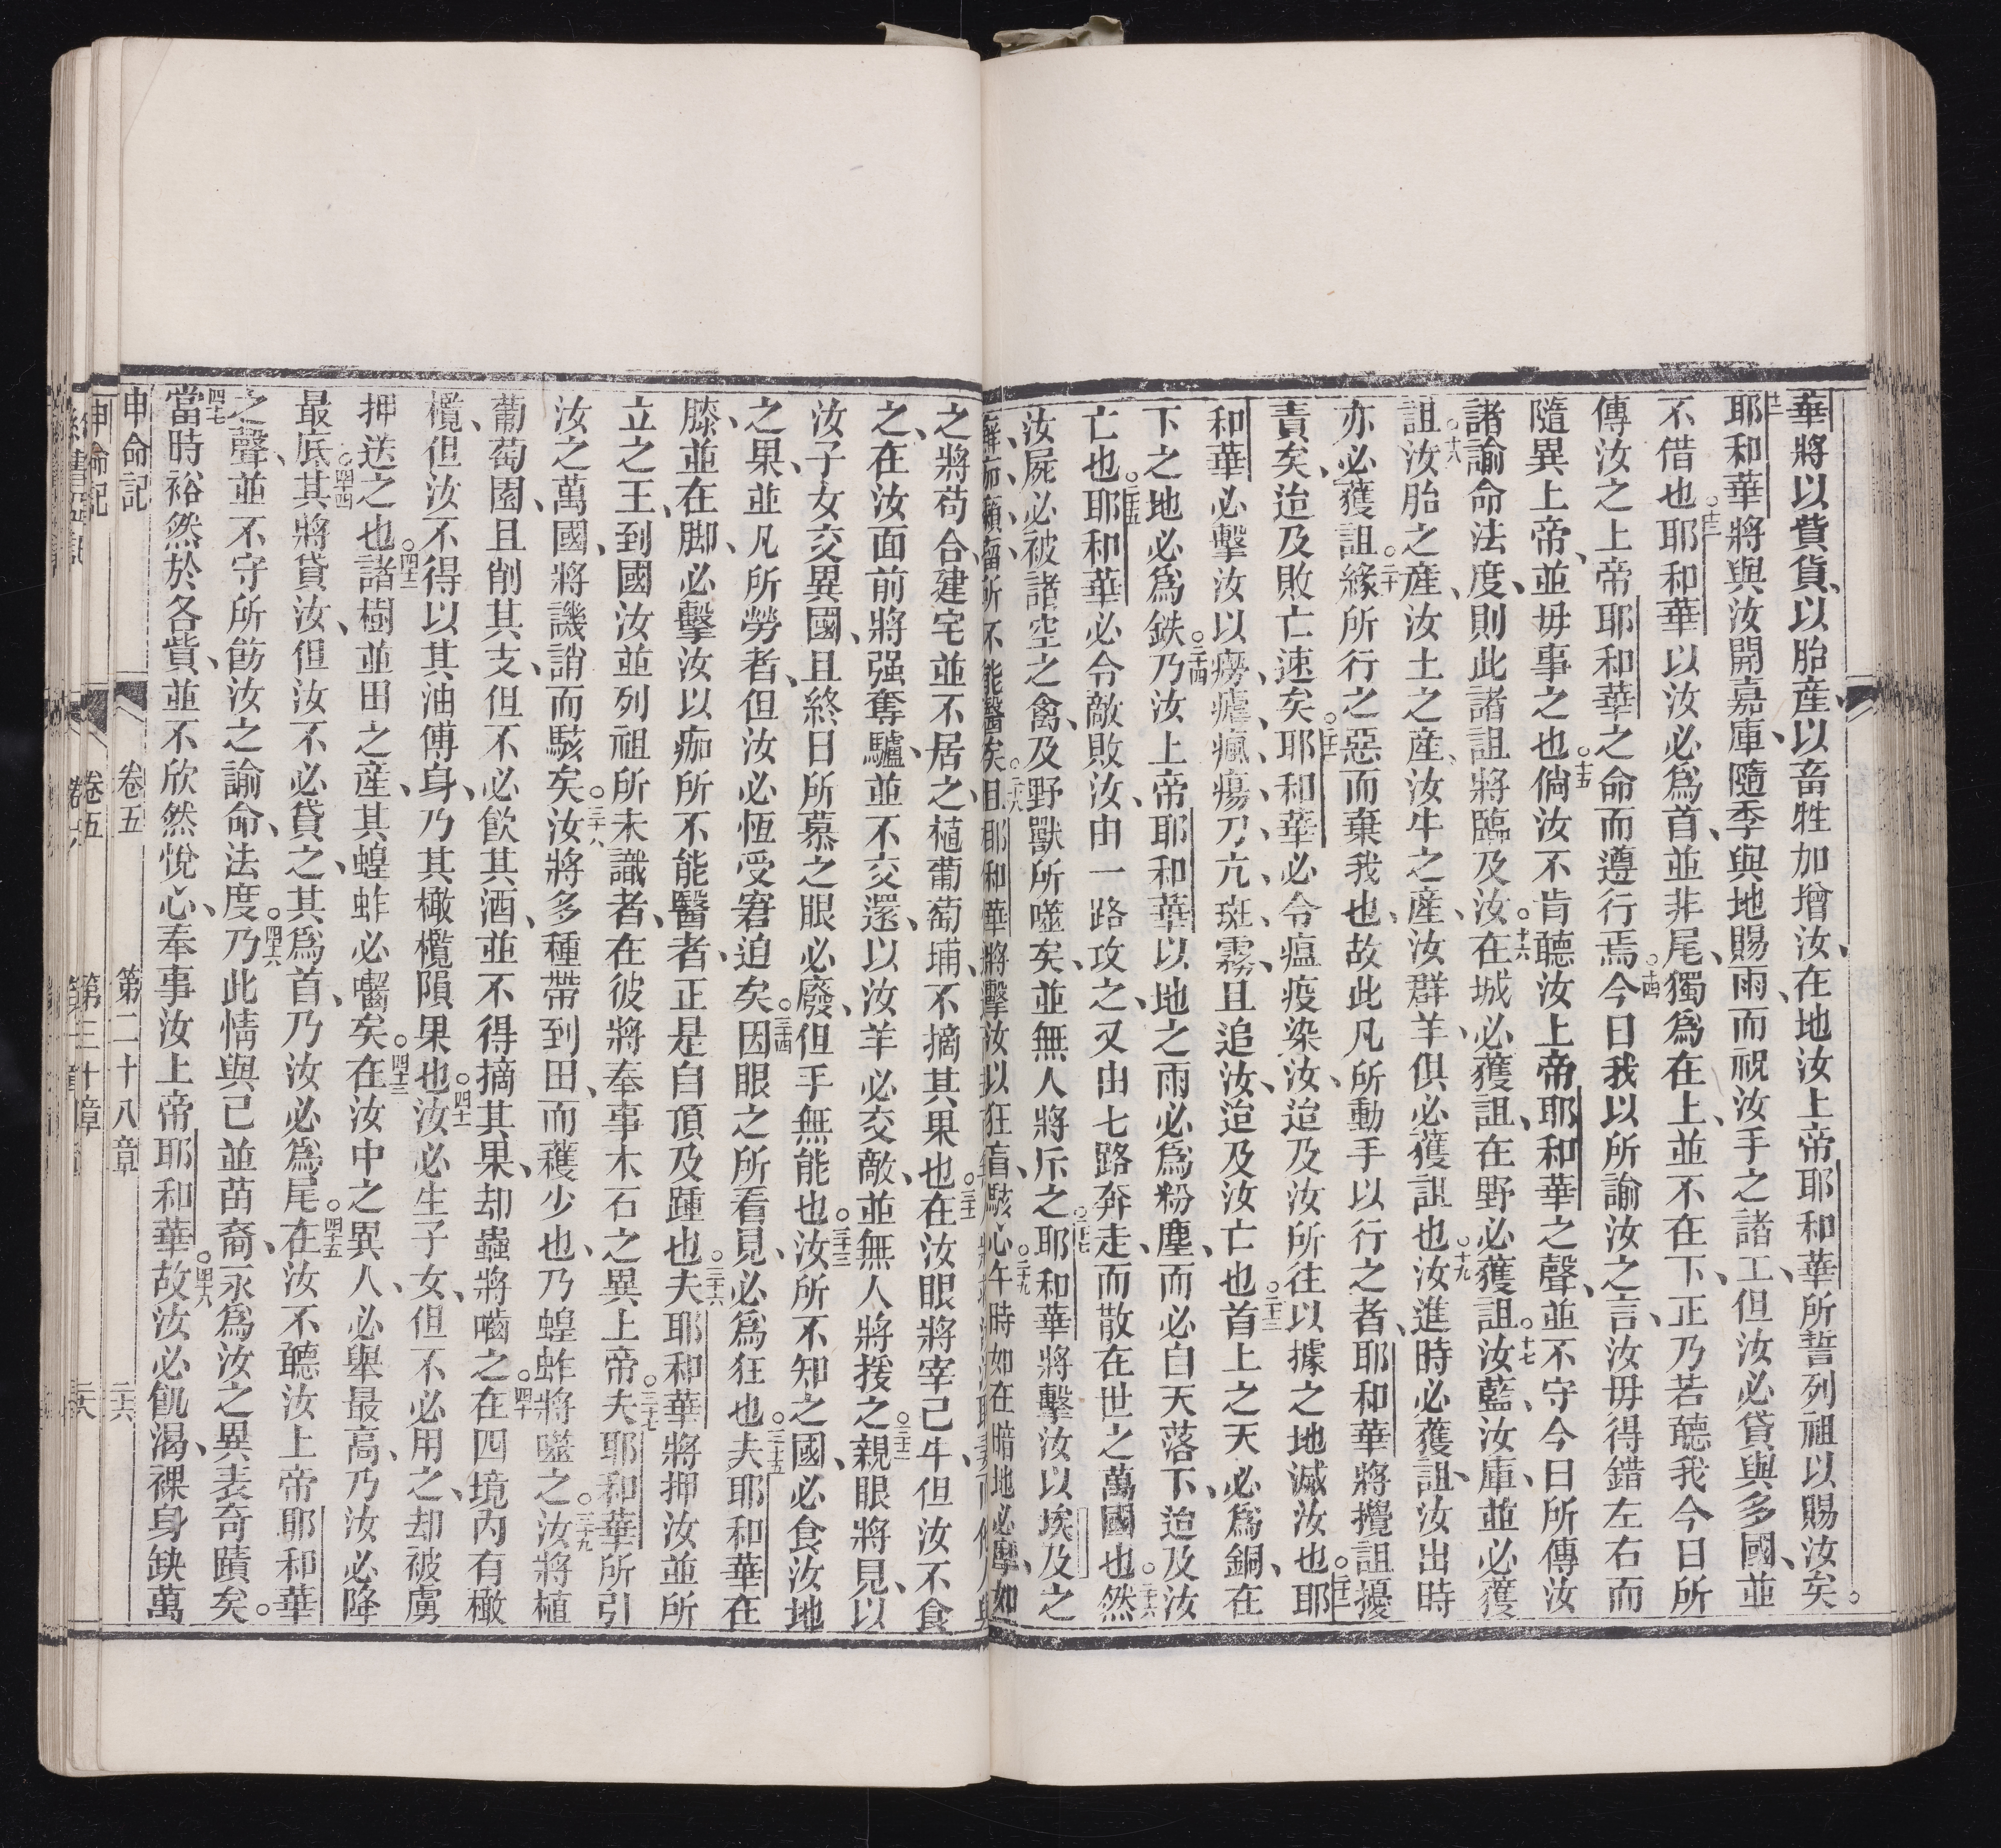 華將以貲貨、以胎産、以畜牲加增汝、在地汝上帝耶和華所誓列祖以賜汝矣。
耶和華將與汝開嘉庫、隨季與地賜雨、而祝汝手之諸工、但汝必貸與多國、並
不借也。十三耶和華以汝必爲首、並非尾、獨爲在上、並不在下、正乃若聽我今日所
傳汝之上帝耶和華之命而遵行焉。十四今日我以所諭汝之言、汝毋得錯左右而
隨異上帝、並毋事之也。十五倘汝不肯聽汝上帝耶和華之聲、並不守今日所傳汝
諸諭命法度、則此諸詛將臨及汝。十六在城必獲詛、在野必獲詛。十七汝藍、汝庫、並必獲
詛。十八汝胎之產、汝土之產、汝牛之產、汝群羊、俱必獲詛也。十九汝進時必獲詛、汝出時
亦必獲詛。二十緣所行之惡而棄我也、故此凡所動手以行之者、耶和華將攪詛擾
責矣、迨及敗亡速矣。二十一耶和華必令瘟疫染汝、迨及汝所往以據之地滅汝也。二十二耶
和華必擊汝以癆瘧、瘋瘍、刀、亢、斑、霧、且追汝、迨及汝亡也。二十三首上之天必爲銅、在
下之地必爲鉄。二十四乃汝上帝耶和華以地之雨必爲粉塵、而必自天落下、迨及汝
亡也。二十五耶和華必令敵敗汝、由一路攻之、又由七路奔走、而散在世之萬國也。二十六然
汝屍必被諸空之禽、及野獸所噬矣、並無人將斥之。二十七耶和華將擊汝以埃及之
所不能醫矣。二十八且耶和華將擊汝以狂、盲、駭心。二十九午時如在暗地必摩、如
之、將苟合、建宅並不居之、植葡萄埔、不摘其果也。三十一在汝眼將宰己牛、但汝不食
之、在汝面前將强奪驢、並不交還、以汝羊必交敵、並無人將援之。三十二親眼將見、以
汝子女交異國、且終日所慕之眼必廢、但手無能也。三十三汝所不知之國、必食汝地
之果、並凡所勞者、但汝必恆受窘迫矣。三十四因眼之所看見、必爲狂也。三十五夫耶和華在
膝、並在脚、必擊汝以痂所不能醫者、正是自頂及踵也。三十六夫耶和華將押汝並所
立之王、到國汝並列祖所未識者、在彼將奉事木石之異上帝。三十七夫耶和華所引
汝之萬國、將譏誚而駭矣。三十八汝將多種帶到田、而穫少也、乃蝗蚱將噬之。三十九汝將植
葡萄園、且削其支、但不必飲其酒、並不得摘其果、却蟲將嚙之。四十在四境內有橄
欖、但汝不得以其油傅身、乃其橄欖隕果也。四十一汝必生子女、但不必用之、却被虜
押送之也。四十二諸樹並田之產、其蝗蚱必囓矣。四十三在汝中之異人、必舉最高、乃汝必降
最底。四十四其將貸汝、但汝不必貸之、其爲首、乃汝必爲尾。四十五在汝不聽汝上帝耶和華
之聲、並不守所飭汝之諭命、法度。四十六乃此情與己並苗裔、永爲汝之異表奇蹟矣。
四十七當時裕然於各貲、並不欣然悅心、奉事汝上帝耶和華。四十八故汝必飢渴、裸身缺萬
申命記 卷五 第二十八章 三六
申命記 卷五 第三十章